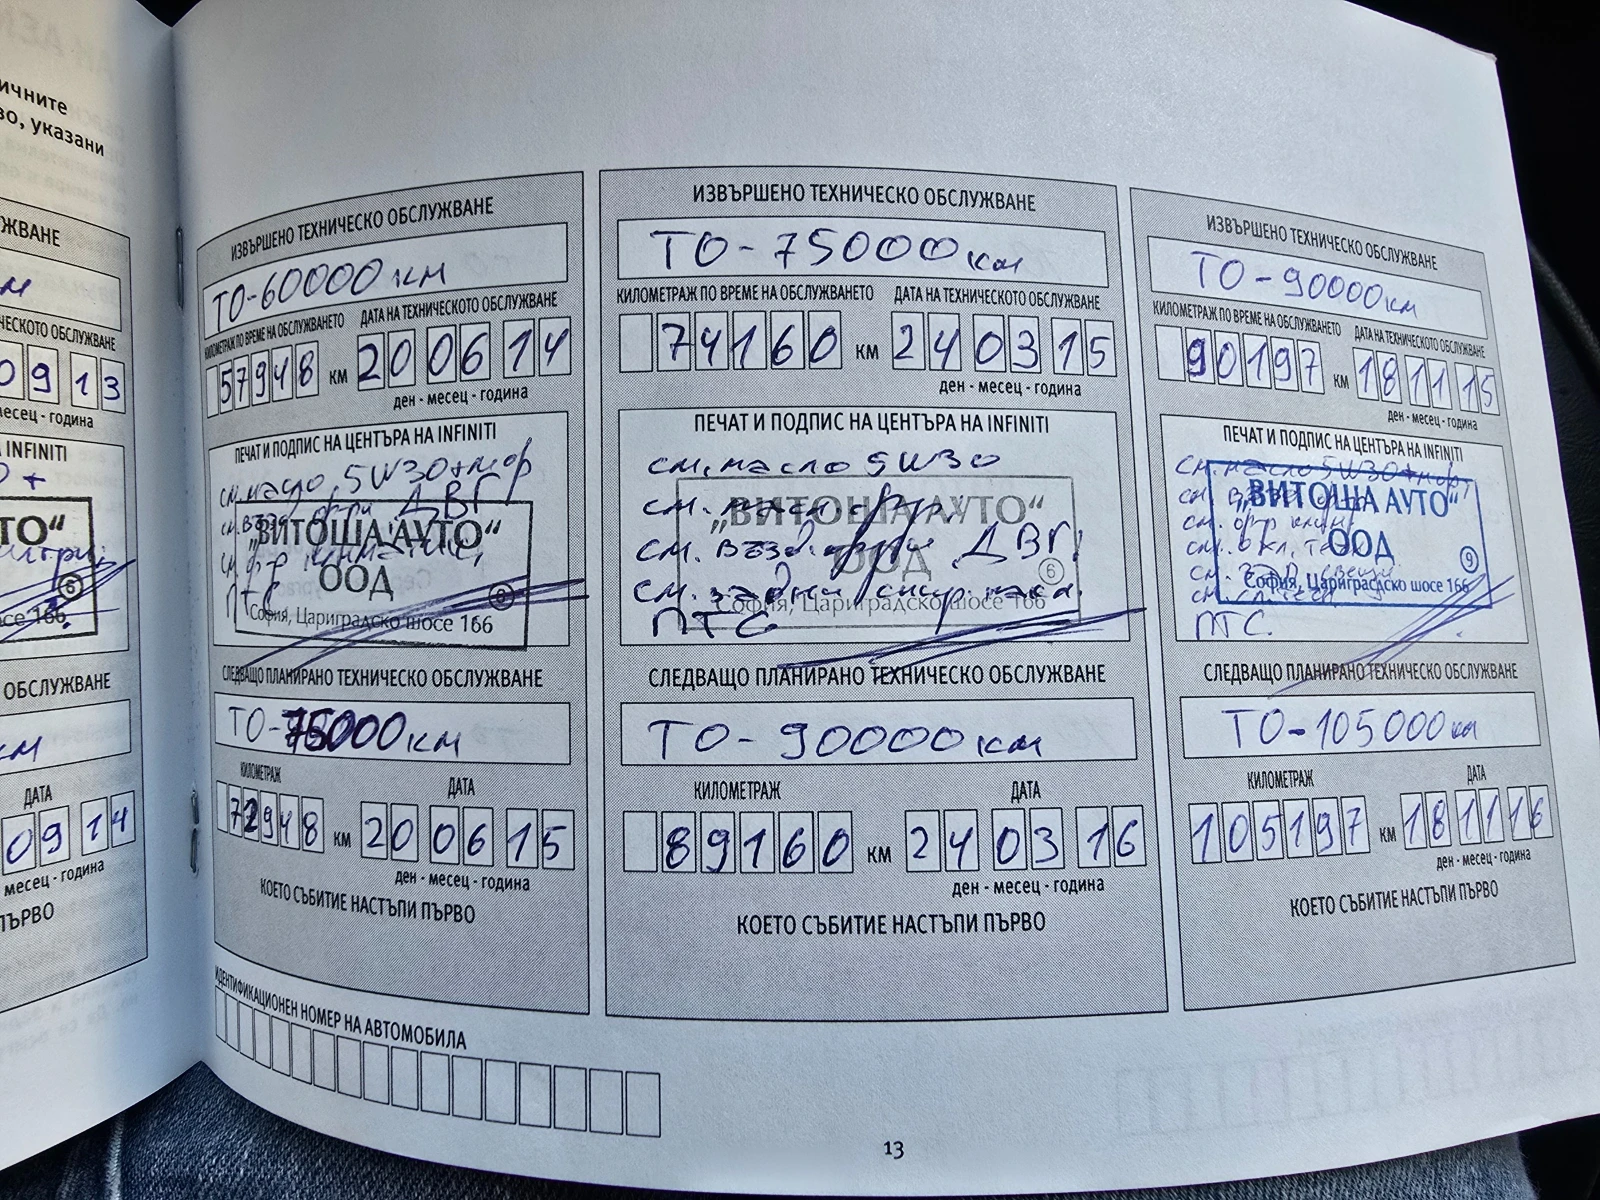 ичните
во, указани
ЖВАНЕ
км
ЧЕСКОТО ОБСЛУЖВАНЕ
09 13
месец - година
INFINITI
ТО“
6
осе 166
ОБСЛУЖВАНЕ
км
ДАТА
09 14
месец - година
ПЪРВО
ИЗВЪРШЕНО ТЕХНИЧЕСКО ОБСЛУЖВАНЕ
ТО-60000 км
КИЛОМЕТРАЖ ПО ВРЕМЕ НА ОБСЛУЖВАНЕТО ДАТА НА ТЕХНИЧЕСКОТО ОБСЛУЖВАНЕ
57948 КМ 20 06 14
ден - месец - година
ПЕЧАТ И ПОДПИС НА ЦЕНТЪРА НА INFINITI
см. масло 5W30+м.ф
ДВГ
„ВИТОША АУТО“
ООД
София, Цариградско шосе 166
ПТС
СЛЕДВАЩО ПЛАНИРАНО ТЕХНИЧЕСКО ОБСЛУЖВАНЕ
ТО-75000 км
КИЛОМЕТРАЖ ДАТА
72948 КМ 20 06 15
ден - месец - година
КОЕТО СЪБИТИЕ НАСТЪПИ ПЪРВО
ИДЕНТИФИКАЦИОНЕН НОМЕР НА АВТОМОБИЛА
ИЗВЪРШЕНО ТЕХНИЧЕСКО ОБСЛУЖВАНЕ
ТО-75000 км
КИЛОМЕТРАЖ ПО ВРЕМЕ НА ОБСЛУЖВАНЕТО ДАТА НА ТЕХНИЧЕСКОТО ОБСЛУЖВАНЕ
74160 КМ 24 03 15
ден - месец - година
ПЕЧАТ И ПОДПИС НА ЦЕНТЪРА НА INFINITI
см. масло 5W30
„ВИТОША АУТО“
см. възд. ДВГ
ООД
6
см. задни спир. накл.
София, Цариградско шосе 166
ПТС
СЛЕДВАЩО ПЛАНИРАНО ТЕХНИЧЕСКО ОБСЛУЖВАНЕ
ТО-90000 км
КИЛОМЕТРАЖ ДАТА
89160 КМ 24 03 16
ден - месец - година
КОЕТО СЪБИТИЕ НАСТЪПИ ПЪРВО
13
ИЗВЪРШЕНО ТЕХНИЧЕСКО ОБСЛУЖВАНЕ
ТО-90000 км
КИЛОМЕТРАЖ ПО ВРЕМЕ НА ОБСЛУЖВАНЕТО ДАТА НА ТЕХНИЧЕСКОТО ОБСЛУЖВАНЕ
90197 КМ 18 11 15
ден - месец - година
ПЕЧАТ И ПОДПИС НА ЦЕНТЪРА НА INFINITI
см. масло 5W30+
„ВИТОША АУТО“
ООД
9
София, Цариградско шосе 166
ПТС.
СЛЕДВАЩО ПЛАНИРАНО ТЕХНИЧЕСКО ОБСЛУЖВАНЕ
ТО-105000 км
КИЛОМЕТРАЖ ДАТА
105197 КМ 18 11 16
ден - месец - година
КОЕТО СЪБИТИЕ НАСТЪПИ ПЪРВО